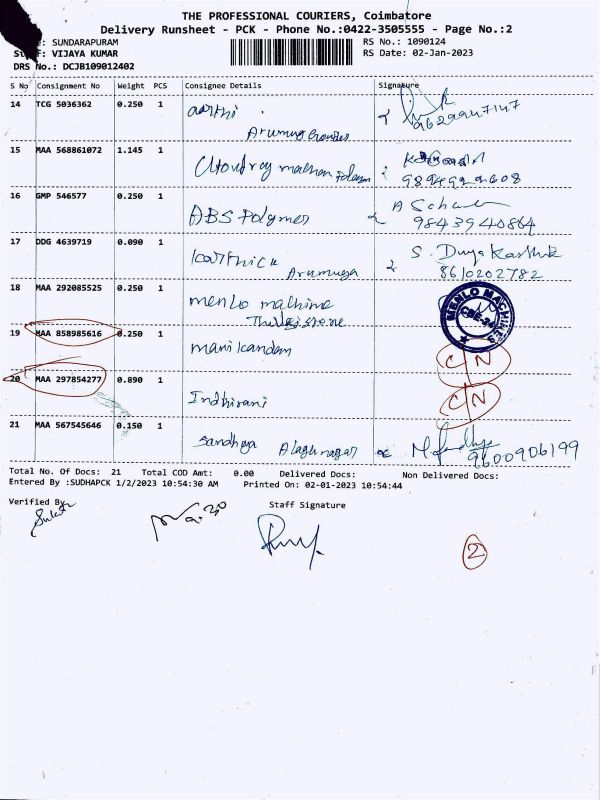 THE PROFESSIONAL COURIERS, Coimbatore
Delivery Runsheet - PCK - Phone No.:0422-3505555 - Page No.:2
: SUNDARAPURAM
RS No.: 1090124
f: VIJAYA KUMAR
RS Date: 02-Jan-2023
DRS No.: DCJB109012402
S No Consignment No Weight PCS Consignee Details Signature
14 TCG 5036362 0.250 1 aarthi
9629947147
15 MAA 568861072 1.145 1
16 GMP 546577 0.250 1 ABS Polymer
9843940864
17 DDG 4639719 0.090 1 karthick S. Durga Karthik
Arumuga 8610202782
18 MAA 292085525 0.250 1 menlo machine MENLO MACHINES
CBE-24
19 MAA 858985616 0.250 1 manikandan C/N
20 MAA 297854277 0.890 1 Indhirani C/N
21 MAA 567545646 0.150 1 sandhya Alagunagar 9600906199
Total No. Of Docs: 21 Total COD Amt: 0.00 Delivered Docs: Non Delivered Docs:
Entered By :SUDHAPCK 1/2/2023 10:54:30 AM Printed On: 02-01-2023 10:54:44
Verified By Staff Signature
2